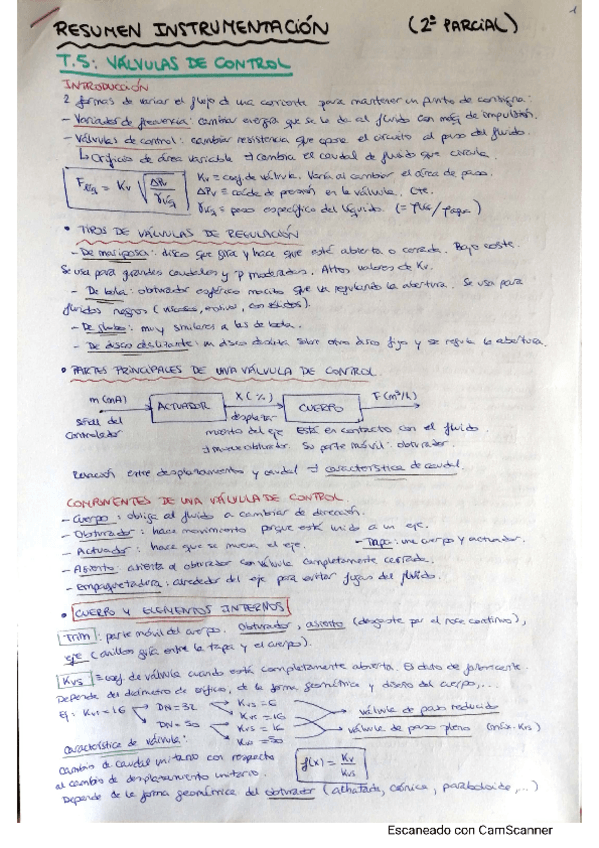 1
RESUMEN INSTRUMENTACIÓN (2º PARCIAL)
T.5: VÁLVULAS DE CONTROL
INTRODUCCIÓN
2 formas de variar el flujo de una corriente para mantener un punto de consigna:
- Variador de frecuencia: cambiar energía que se le da al fluido con máq de impulsión.
- Válvulas de control: cambiar resistencia que opone el circuito al paso del fluido.
↳ Orificio de área variable → cambia el caudal de fluido que circula.
Kv = coef de válvula. Varía al cambiar el área de paso.
ΔPv = caída de presión en la válvula. Cte.
= peso específico del líquido.
• TIPOS DE VÁLVULAS DE REGULACIÓN
- De mariposa: disco que gira y hace que esté abierta o cerrada. Bajo coste.
Se usa para grandes caudales y P moderadas. Altos valores de Kv.
- De bola: obturador esférico macizo que va regulando la abertura. Se usa para
fluidos negros (viscosos, con sólidos).
- De globo: muy similares a las de bola.
- De disco deslizante: un disco desliza sobre otro disco fijo y se regula la abertura.
• PARTES PRINCIPALES DE UNA VÁLVULA DE CONTROL
m (mA) ACTUADOR X (%) CUERPO F (m³/h)
señal del controlador
desplazamiento del eje
Está en contacto con el fluido.
Su parte móvil: obturador.
Relación entre desplazamiento y caudal → característica de caudal.
COMPONENTES DE UNA VÁLVULA DE CONTROL
- Cuerpo: obliga al fluido a cambiar de dirección.
- Obturador: hace movimiento porque está unido a un eje.
- Actuador: hace que se mueva el eje. - Tapa: une cuerpo y actuador.
- Asiento: asienta el obturador con válvula completamente cerrada.
- Empaquetadura: alrededor del eje para evitar fugas del fluido.
• CUERPO Y ELEMENTOS INTERNOS
Trim: parte móvil del cuerpo. Obturador, asiento (desgaste por el roce continuo),
eje (anillos guía entre la tapa y el cuerpo).
Kvs = coef. de válvula cuando está completamente abierta. El dato de fabricante.
Depende del diámetro de orificio, de la forma geométrica y diseño del cuerpo,...
Ej: Kvs = 16 DN = 32 Kvs = 6
Kvs = 16 válvula de paso reducido
DN = 50 Kvs = 16 válvula de paso pleno (máx. Kvs)
característica de válvula:
Cambio de caudal unitario con respecto
al cambio de desplazamiento unitario. f(x) = Kv/Kvs
Depende de la forma geométrica del obturador (cónica, paraboloide,...)
Escaneado con CamScanner